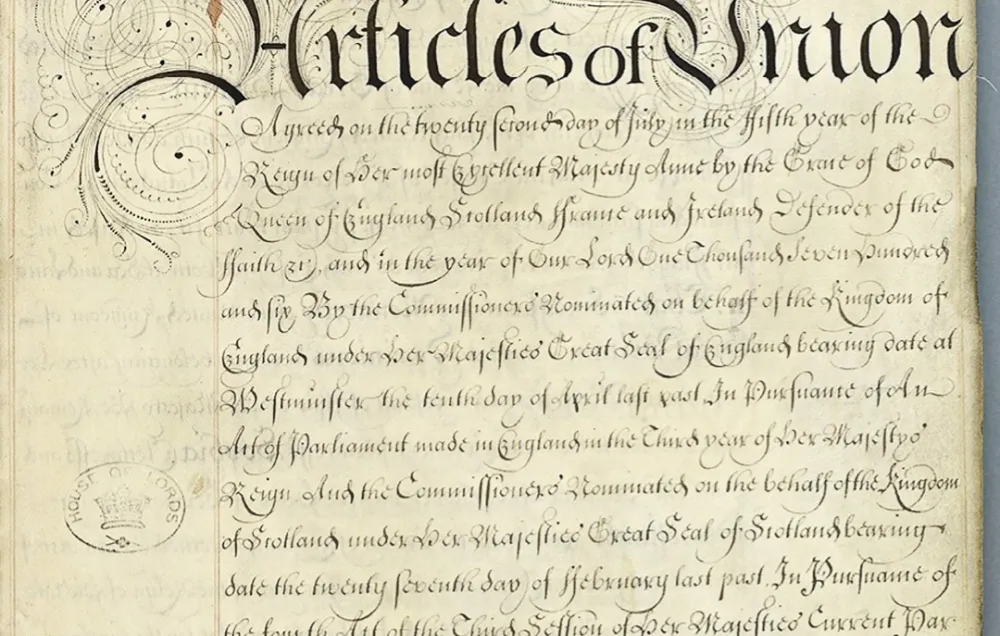 Articles of Union
Agreed on the twenty second day of July, in the ffifth year of the
Reign of Her most Excellent Majesty Anne by the Grace of God
Queen of England Scotland ffrance and Ireland Defender of the
ffaith &c, and in the year of Our Lord One Thousand Seven Hundred
and six, By the Commissioners Nominated on behalf of the Kingdom of
England under Her Majesties Great Seal of England bearing date at
Westminster the tenth day of April last past, In Pursuance of An
Act of Parliament made in England in the Third year of Her Majestys
Reign, And the Commissioners Nominated on the behalf of the Kingdom
of Scotland under Her Majesties Great Seal of Scotland bearing
date the twenty seventh day of ffebruary last past, In Pursuance of
the fourth Act of the Third Session of Her Majesties Current Par
HOUSE OF LORDS